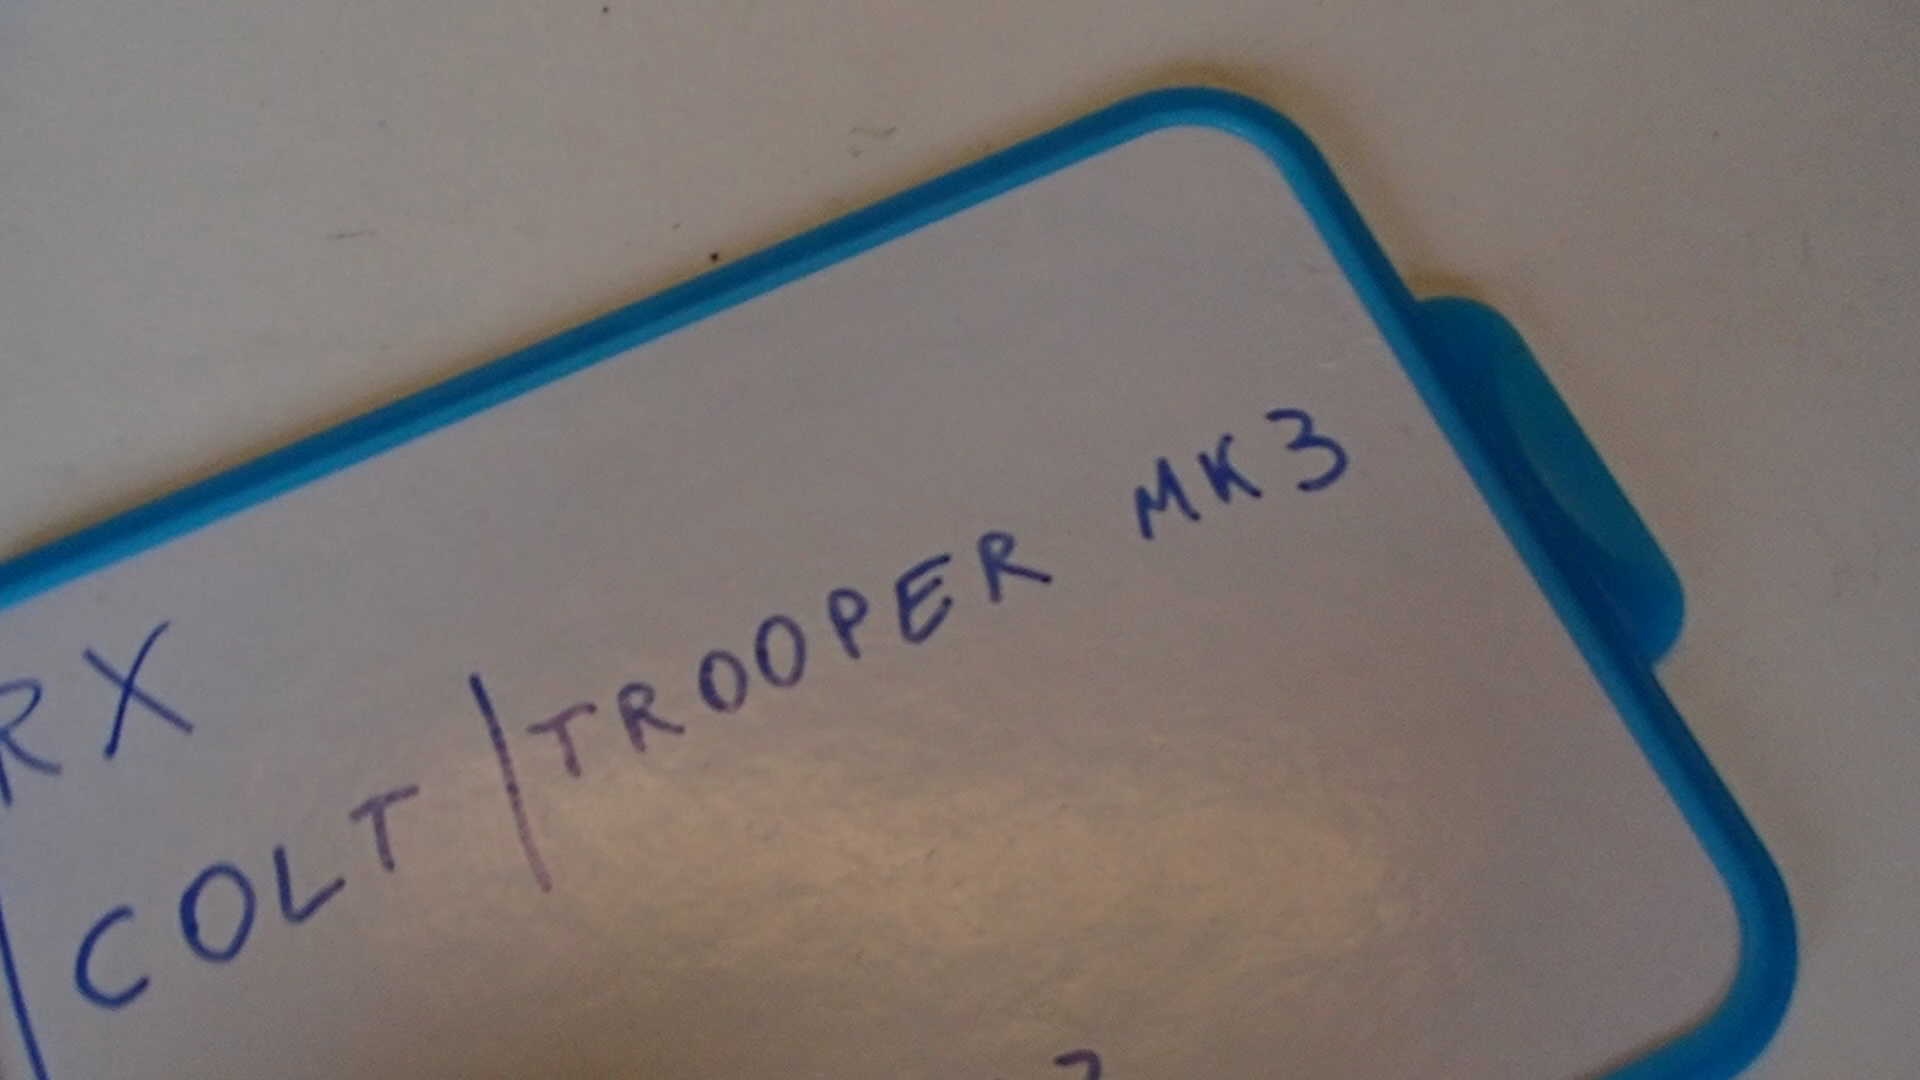 RX
| COLT | TROOPER MK3